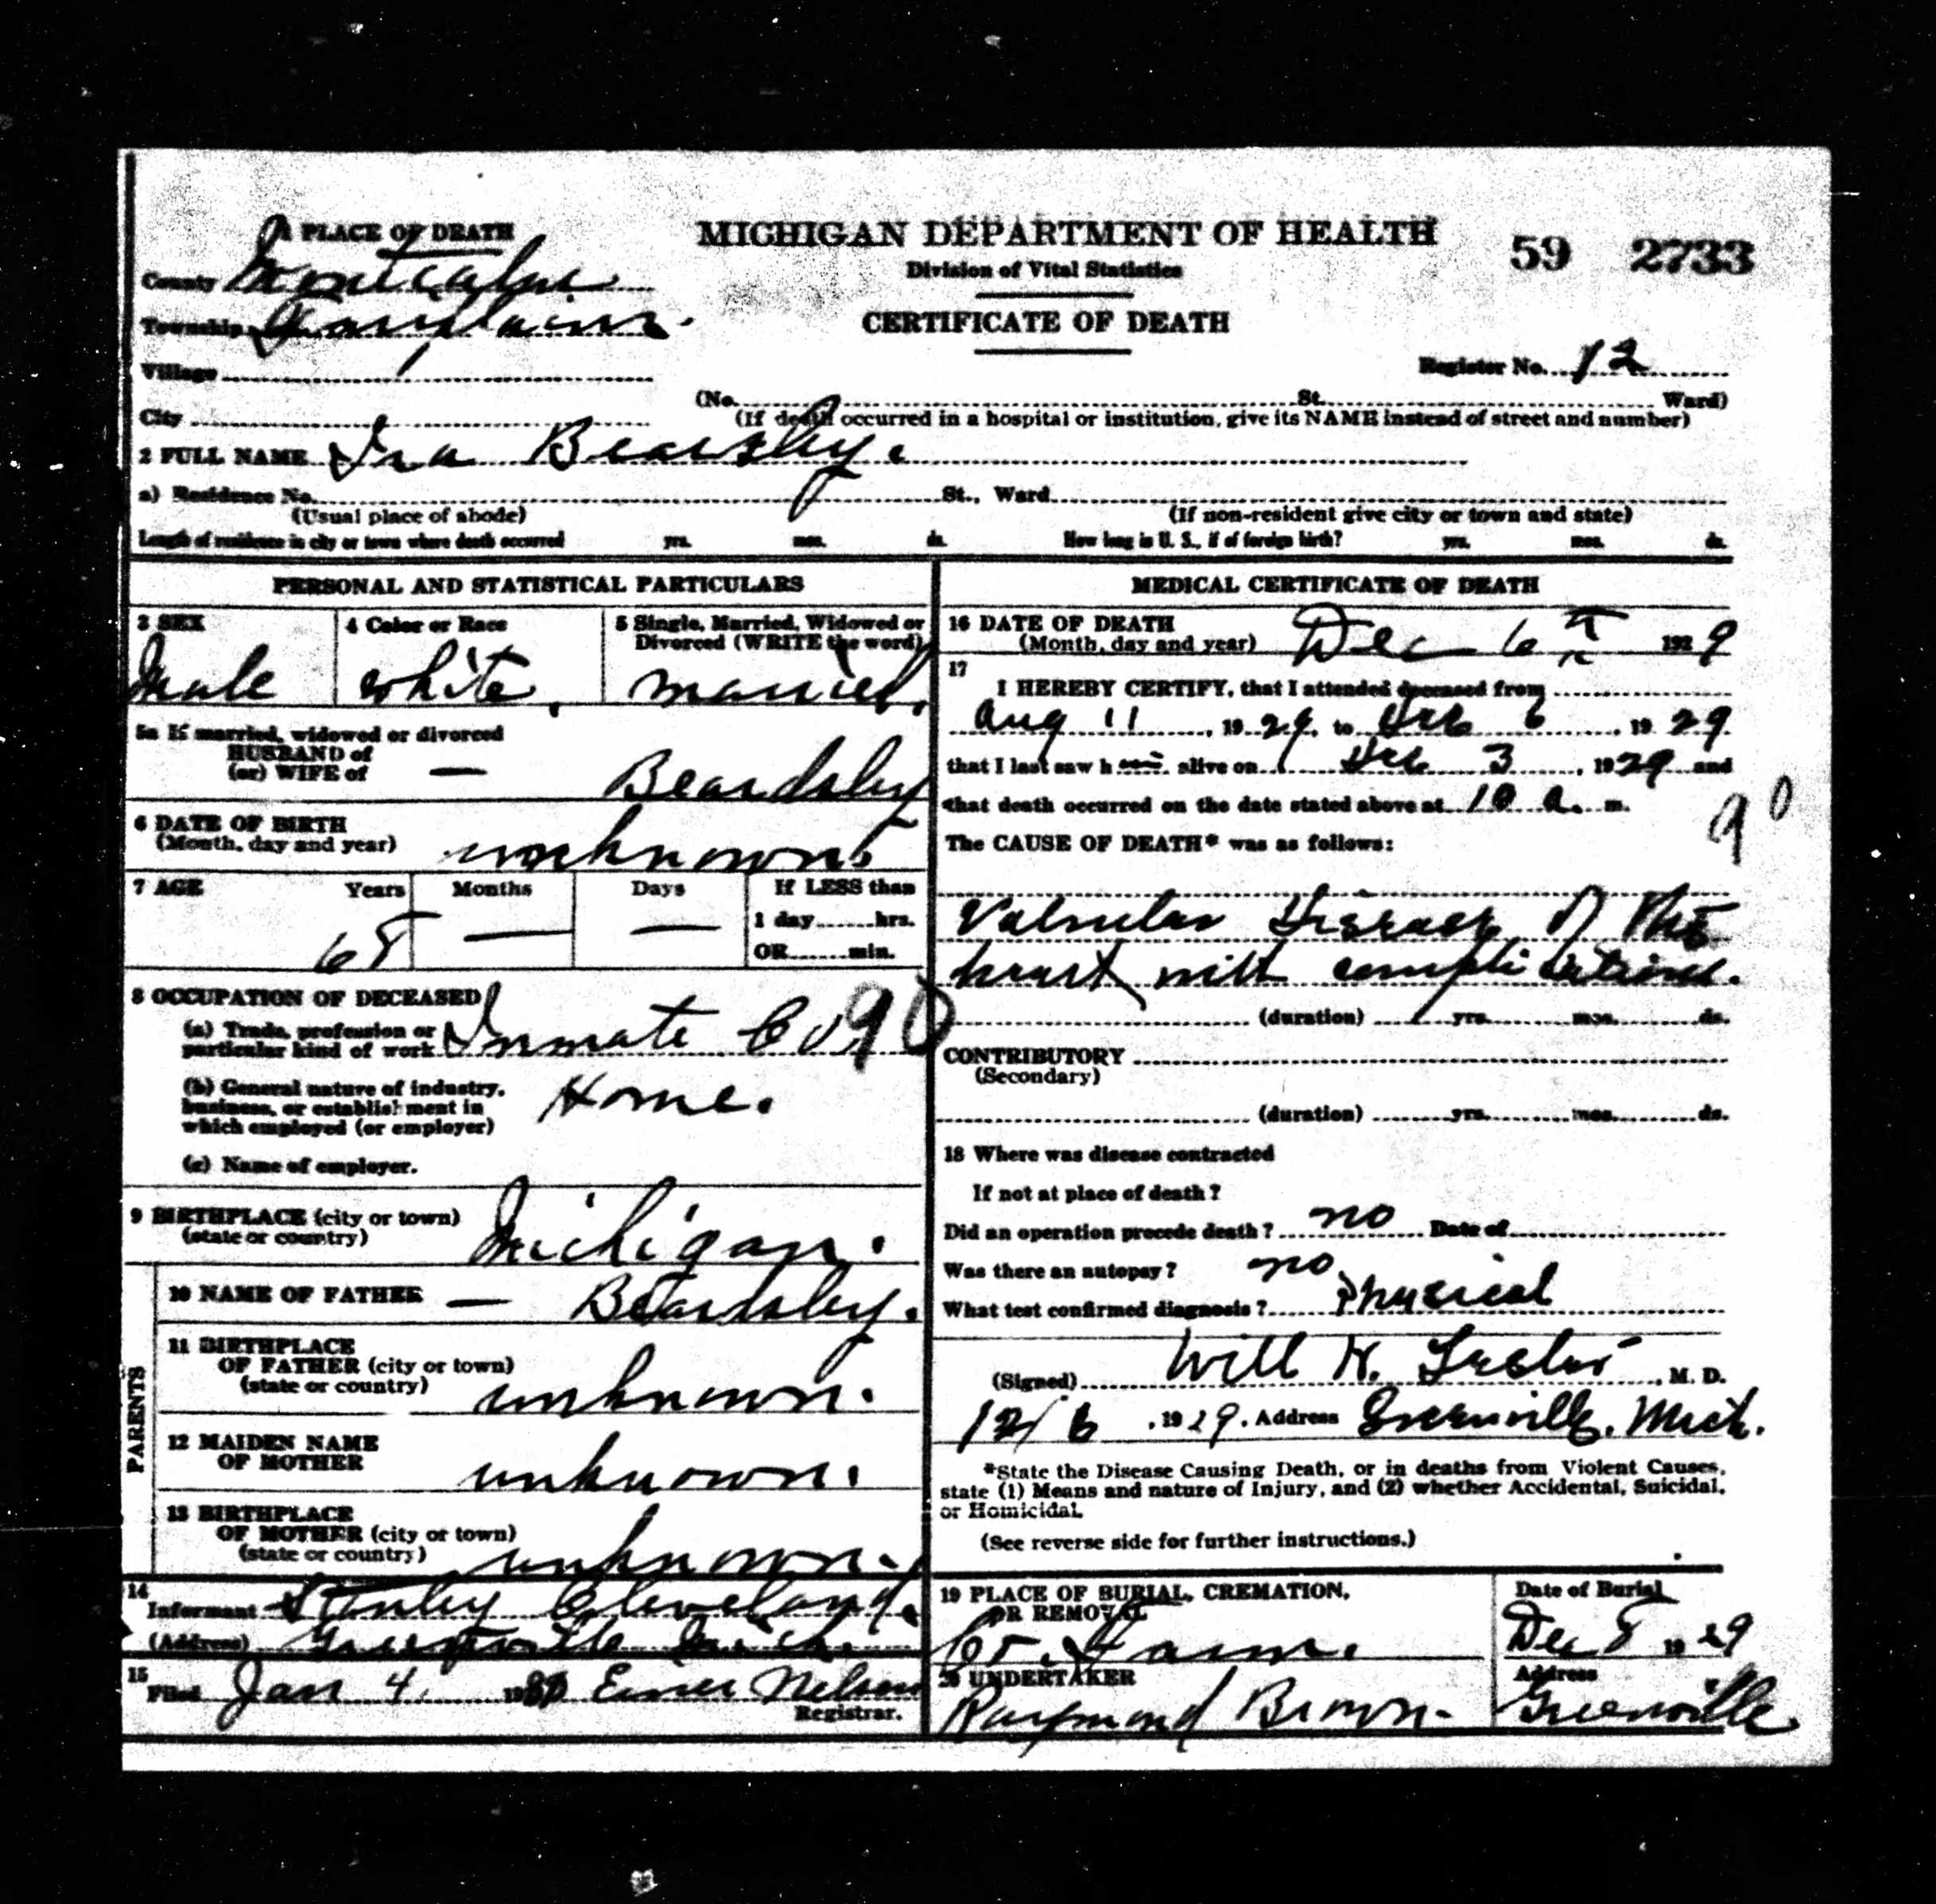 1 PLACE OF DEATH
MICHIGAN DEPARTMENT OF HEALTH
59 2733
County Montcalm
Division of Vital Statistics
Township
CERTIFICATE OF DEATH
Village
Register No. 12
City
(No. St. Ward)
(If death occurred in a hospital or institution, give its NAME instead of street and number)
2 FULL NAME Ira Bearsley.
a) Residence No. St., Ward
(Usual place of abode) (If non-resident give city or town and state)
Length of residence in city or town where death occurred yrs. mos. ds. How long in U. S., if of foreign birth? yrs. mos. ds.
PERSONAL AND STATISTICAL PARTICULARS
3 SEX
Male
4 Color or Race
white.
5 Single, Married, Widowed or
Divorced (WRITE the word)
married.
5a If married, widowed or divorced
HUSBAND of
(or) WIFE of — Beardsley
6 DATE OF BIRTH
(Month, day and year) unknown.
7 AGE Years Months Days If LESS than
1 day hrs.
68 — — OR min.
8 OCCUPATION OF DECEASED
(a) Trade, profession or
particular kind of work Inmate Co 90
(b) General nature of industry,
business, or establishment in
which employed (or employer) Home.
(c) Name of employer.
9 BIRTHPLACE (city or town)
(state or country) Michigan.
PARENTS
10 NAME OF FATHER — Beardsley.
11 BIRTHPLACE
OF FATHER (city or town)
(state or country) unknown.
12 MAIDEN NAME
OF MOTHER unknown.
13 BIRTHPLACE
OF MOTHER (city or town)
(state or country) unknown.
14
Informant Stanley Cleveland.
(Address) Greenville Mich.
15
Filed Jan 4. 1930 Einer Nelson
Registrar.
MEDICAL CERTIFICATE OF DEATH
16 DATE OF DEATH
(Month, day and year) Dec 6th 1929
17
I HEREBY CERTIFY, that I attended deceased from
Aug 11, 1929, to Dec 6, 1929
that I last saw him alive on Dec 3, 1929 and
that death occurred on the date stated above at 10 a. m.
90
The CAUSE OF DEATH* was as follows:
Valvular Disease of the
heart with complications.
(duration) yrs. mos. ds.
CONTRIBUTORY
(Secondary)
(duration) yrs. mos. ds.
18 Where was disease contracted
If not at place of death?
Did an operation precede death? no Date of
Was there an autopsy? no
What test confirmed diagnosis? Physical
(Signed) Will H. , M. D.
12/6, 1929. Address Greenville, Mich.
*State the Disease Causing Death, or in deaths from Violent Causes,
state (1) Means and nature of Injury, and (2) whether Accidental, Suicidal,
or Homicidal.
(See reverse side for further instructions.)
19 PLACE OF BURIAL, CREMATION,
OR REMOVAL
Co. Farm.
Date of Burial
Dec 8 1929
20 UNDERTAKER
Raymond Brown.
Address
Greenville